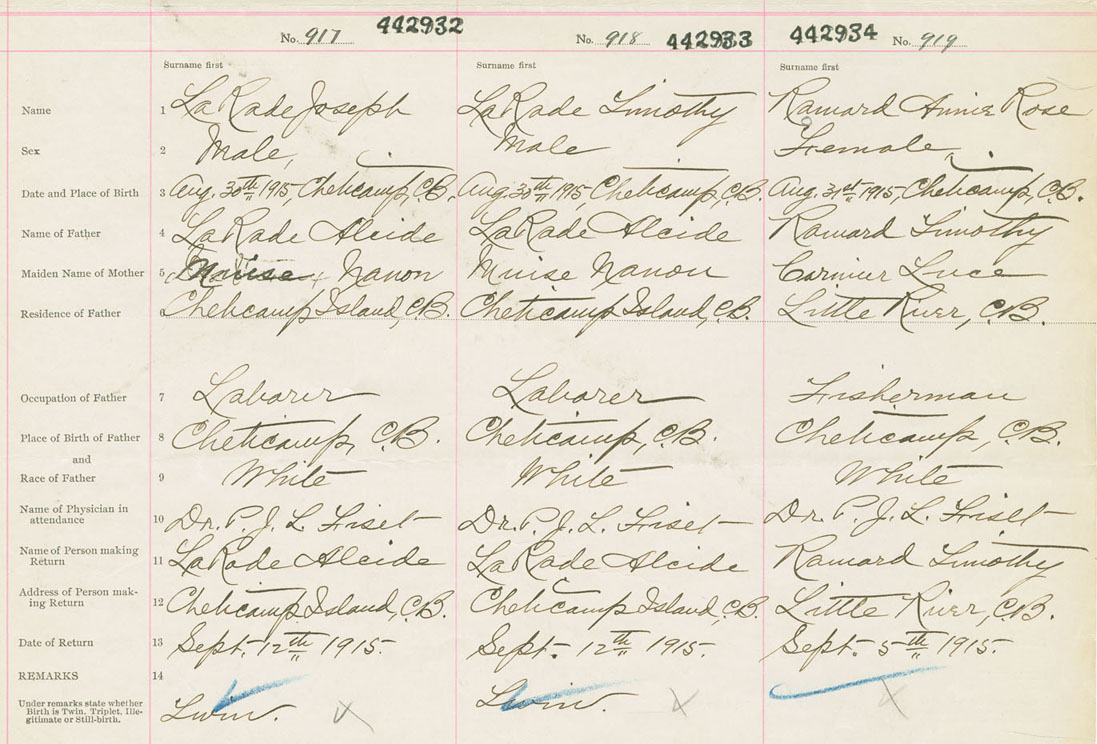 No. 917 442932 No. 918 442933 442934 No. 919
Surname first Surname first Surname first
Name 1 LaRade Joseph LaRade Timothy Ramard Annie Rose
Sex 2 Male, Male Female,
Date and Place of Birth 3 Aug. 30th 1915, Cheticamp, C.B. Aug. 30th 1915, Cheticamp, C.B. Aug. 31st 1915, Cheticamp, C.B.
Name of Father 4 LaRade Alcide LaRade Alcide Ramard Timothy
Maiden Name of Mother 5 Muise Nanon Muise Nanon Cormier Luce
Residence of Father 6 Cheticamp Island, C.B. Cheticamp Island, C.B. Little River, C.B.
Occupation of Father 7 Laborer Laborer Fisherman
Place of Birth of Father 8 Cheticamp, C.B. Cheticamp, C.B. Cheticamp, C.B.
and
Race of Father 9 White White White
Name of Physician in
attendance 10 Dr. P. J. L. Fiset Dr. P. J. L. Fiset Dr. P. J. L. Fiset
Name of Person making
Return 11 LaRade Alcide LaRade Alcide Ramard Timothy
Address of Person mak-
ing Return 12 Cheticamp Island, C.B. Cheticamp Island, C.B. Little River, C.B.
Date of Return 13 Sept. 12th 1915. Sept. 12th 1915. Sept. 5th 1915.
REMARKS 14
Under remarks state whether
Birth is Twin, Triplet, Ille-
gitimate or Still-birth. Twin. Twin.